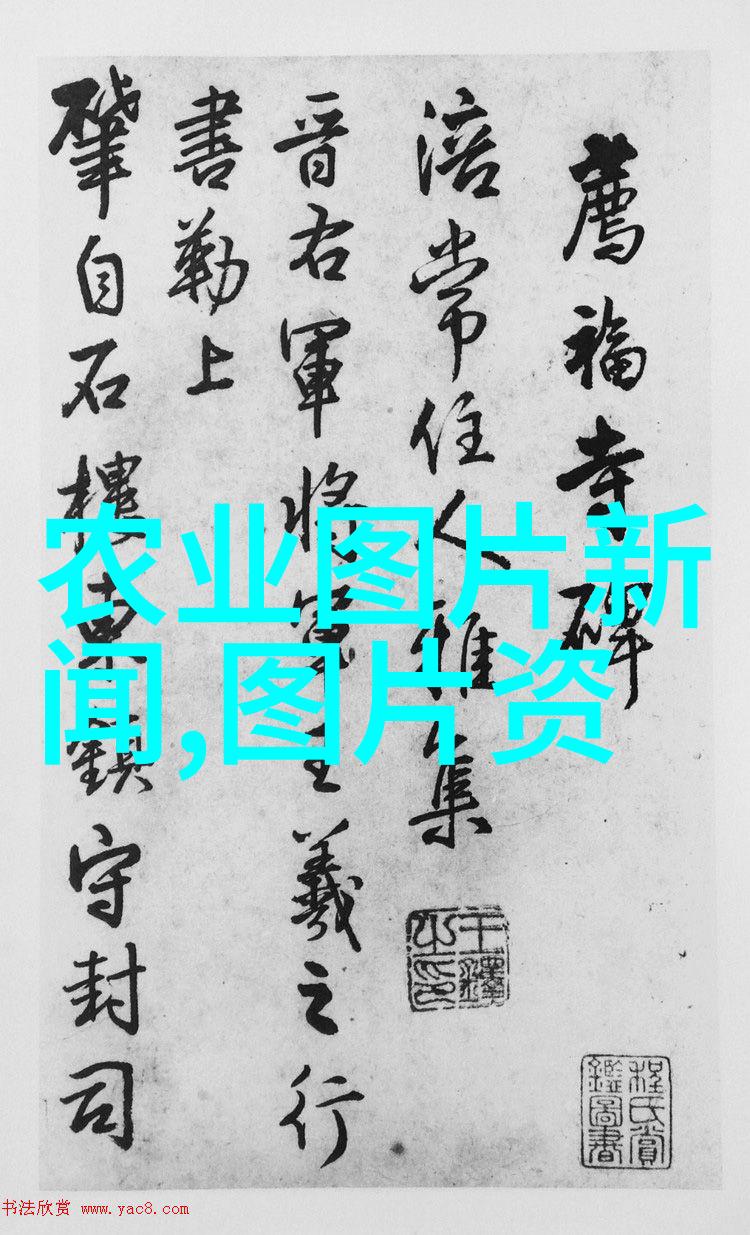 薦福寺碑
涪常住人雅集
晉右軍將軍王羲之行
書勒上
肇自石樓東鎮守封司
王鐸之印
程氏賞鑑圖書
农业图片新
闻,图片资
书法欣赏 www.yac8.com